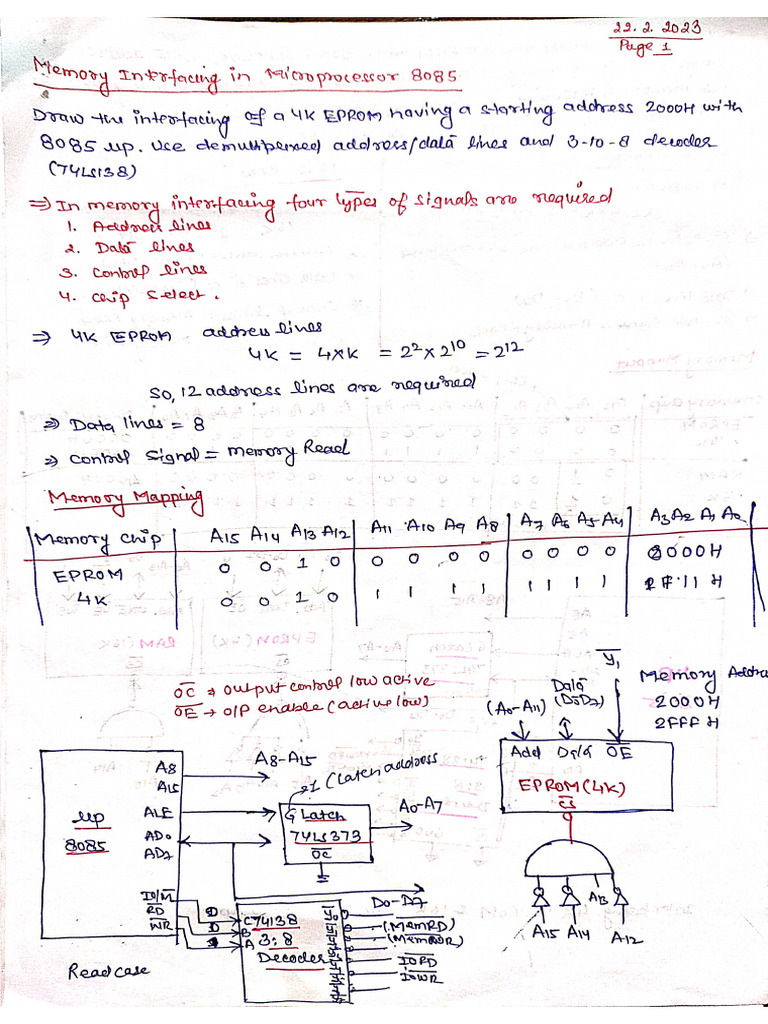 22.2.2023
Page 1
Memory Interfacing in Microprocessor 8085
Draw the interfacing of a 4K EPROM having a starting address 2000H with
8085 up. Use demultiplexed address/data lines and 3-to-8 decoder
(74LS138)
⇒ In memory interfacing four types of signals are required
1. Address lines
2. Data lines
3. Control lines
4. Chip Select.
⇒ 4K EPROM address lines
4K = 4×K = 2² × 2¹⁰ = 2¹²
So, 12 address lines are required
⇒ Data lines = 8
⇒ Control Signal = memory Read
Memory Mapping
Memory Chip A15 A14 A13 A12 A11 A10 A9 A8 A7 A6 A5 A4 A3 A2 A1 A0
EPROM 0 0 1 0 0 0 0 0 0 0 0 0 2000H
4K 0 0 1 0 1 1 1 1 1 1 1 1
O̅C̅ → output control low active
O̅E̅ → O/P enable (active low)
Y̅1
Data
(A0-A11) (D0-D7)
Memory Addre
2000H
2FFFH
Add Data O̅E̅
EPROM (4K)
C̅S̅
A15 A14 A13 A12
A8
A15
A8-A15
1 (Latch address
ALE
G Latch
74LS373
O̅C̅
A0-A7
up
8085
AD0
AD7
D0-D7
IO/M̅
R̅D̅
W̅R̅
C 74138
B
A 3:8
Decoder
(M̅e̅m̅R̅D̅)
(M̅e̅m̅W̅R̅)
I̅O̅R̅D̅
I̅O̅W̅R̅
Read case